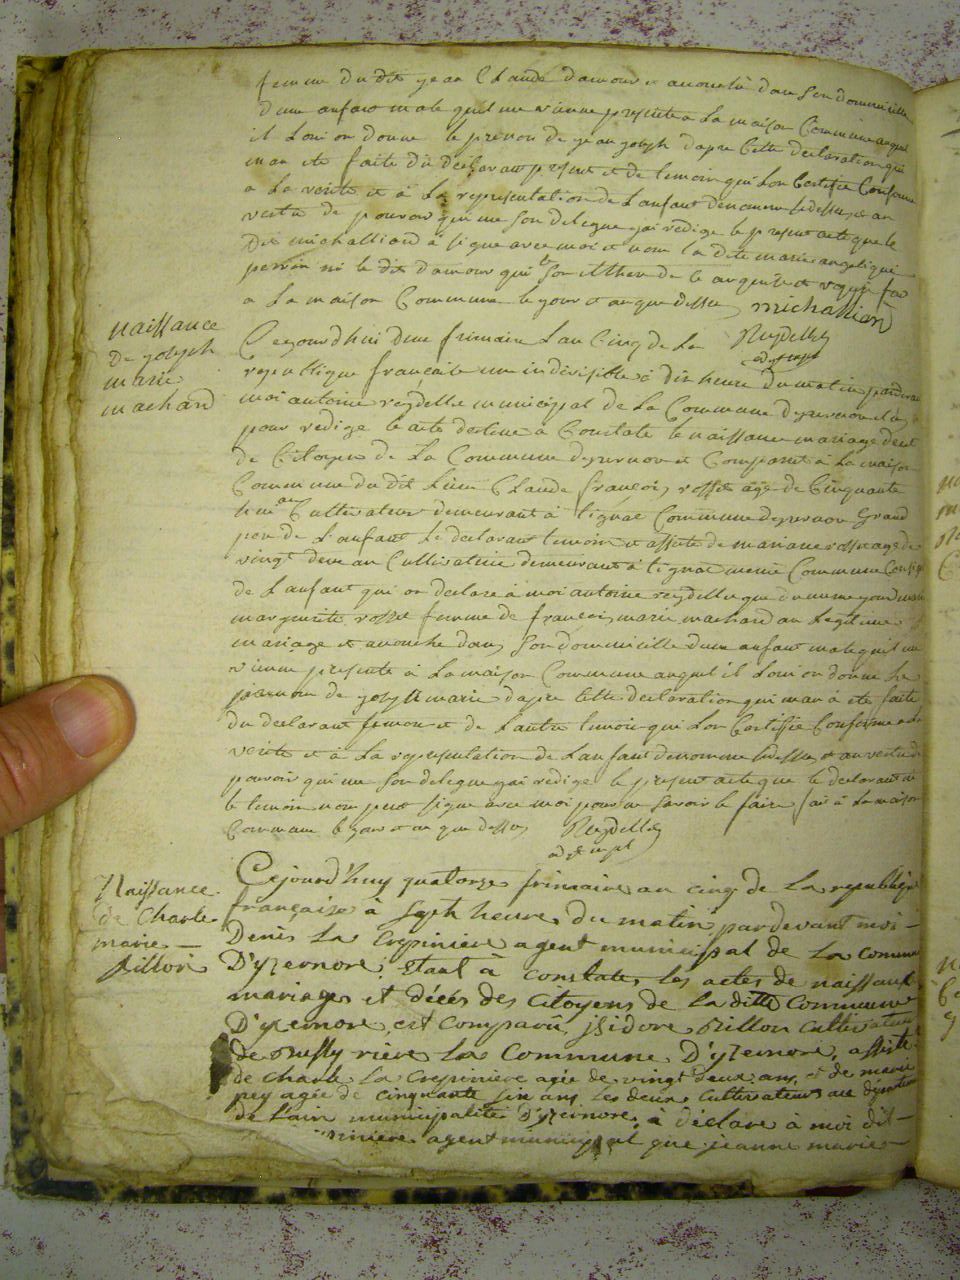 femme du dit jean Claude damour et acouché dan son dommicille
dune anfans male quil me vienne presente a La maison Commune auquel
il Loui on donne le prenon de jean joseph dapre Cette declaration qui
man ete faite du declarant present et de temoin qui Lon Certifie Conforme
a La verite et à La representation de Lanfant denomme sidessu, et an
vertu de pouvoir qui me son delegue jai redige le present acte que le
dit michalliard à signe avec moi et non la dite marie angelique
perrin ni le dit damour qui
a La maison Commune le jour et an que dessu michalliard
naissance
de joseph
marie
machard
Reydellet
Cejourdhui dune frimaire Lan Cinq de La
republique française une indivisible à dix heure du matin pardevan
moi antoine reydellet municipal de La Commune dyzernore elu
pour redige le acte destine a Constate le naissance mariage deces
de Citoyen de La Commune dyzernore et Comparet à La maison
Commune du dit Lieu Claude françoi, rosset age de Cinquante
huit an Cultivateur demeurant à tignat Commune dyzernore Grand
pere de Lanfant Le declarant temoin et assiste de mariane rosset age de
vingt deux an Cultivatrice demeurant à tignat meme Commune
de Lanfant qui on declare à moi antoine reydellet que dunne
marguerite rosset femme de françoi, marie machard an Legitime
mariage et acouche dans son dommicille dune anfant male quil me
vienne presente à La maison Commune auquel il Loui on donne le
prenom de joseph marie dapre Cette declaration qui man à ete faite
du declarant temoin et de Lautre temoin qui Lon Certifie Conforme a La
verite et à La representation de Lanfant denomme sidessu et an vertu de
pouvoir qui me son delegue jai redige le present acte que le declarant ni
le temoin nom peut signe avec moi pour ne savoir le faire fai à La maison
Commune le jour et an que dessu, Reydellet
Naissance
de Charle
marie
Pillion
Cejourd'huy quatorze frimaire an cinq de la republique
françaize à Sept heure du matin, pardevant moi
Denis La Crepiniere agent municipal de la commune
D'yzernore, etant à constater les actes de naissance
mariages et décés des Citoyens de la ditte commune
D'yzernore, est comparû, jsidore Pillion cultivateur
de Bussy rière la commune D'yzernore, assisté
de charle La Crepiniere agée de vingt deux ans, et de marie
pey agée de cinquante six ans, les deux cultivateurs au departement
de L'ain municipalité D'yzernore, à déclaré à moi dit
piniere agent municipal que jeanne marie